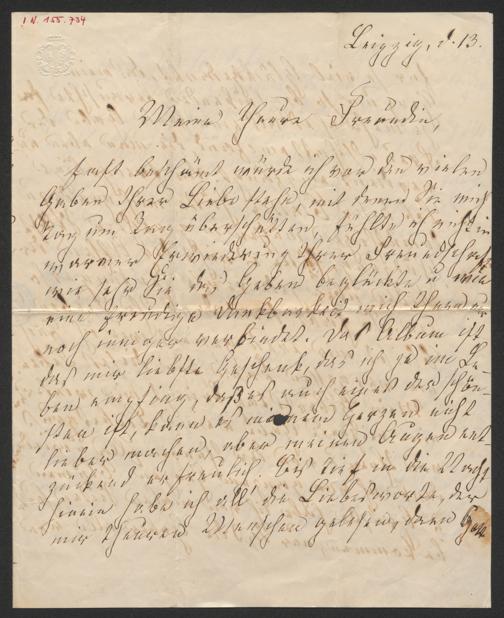 I.N. 155.734
Leipzig, d. 13.
Meine theure Freundin,
Fast beschämt würde ich vor den vielen
Gaben Ihrer Liebe stehe, mit denen Sie mich
Tag um Tag überschütten, fühlte ich nicht in
warmer Erwiederung Ihrer Freundschaft
wie sehr Sie das Geben beglückte u. wie
eine freudige Dankbarkeit mich Ihnen
noch inniger verbindet. Das Album ist
das mir liebste Geschenk, das ich je im Le-
ben empfing, daß es auch eines der schön-
sten ist, kann es meinem Herzen nicht
lieber machen, aber meinen Augen ent
zückend erfreulich. Bis tief in die Nacht
hinein habe ich all die Liebesworte, der
mir theuren Menschen gelesen, deren